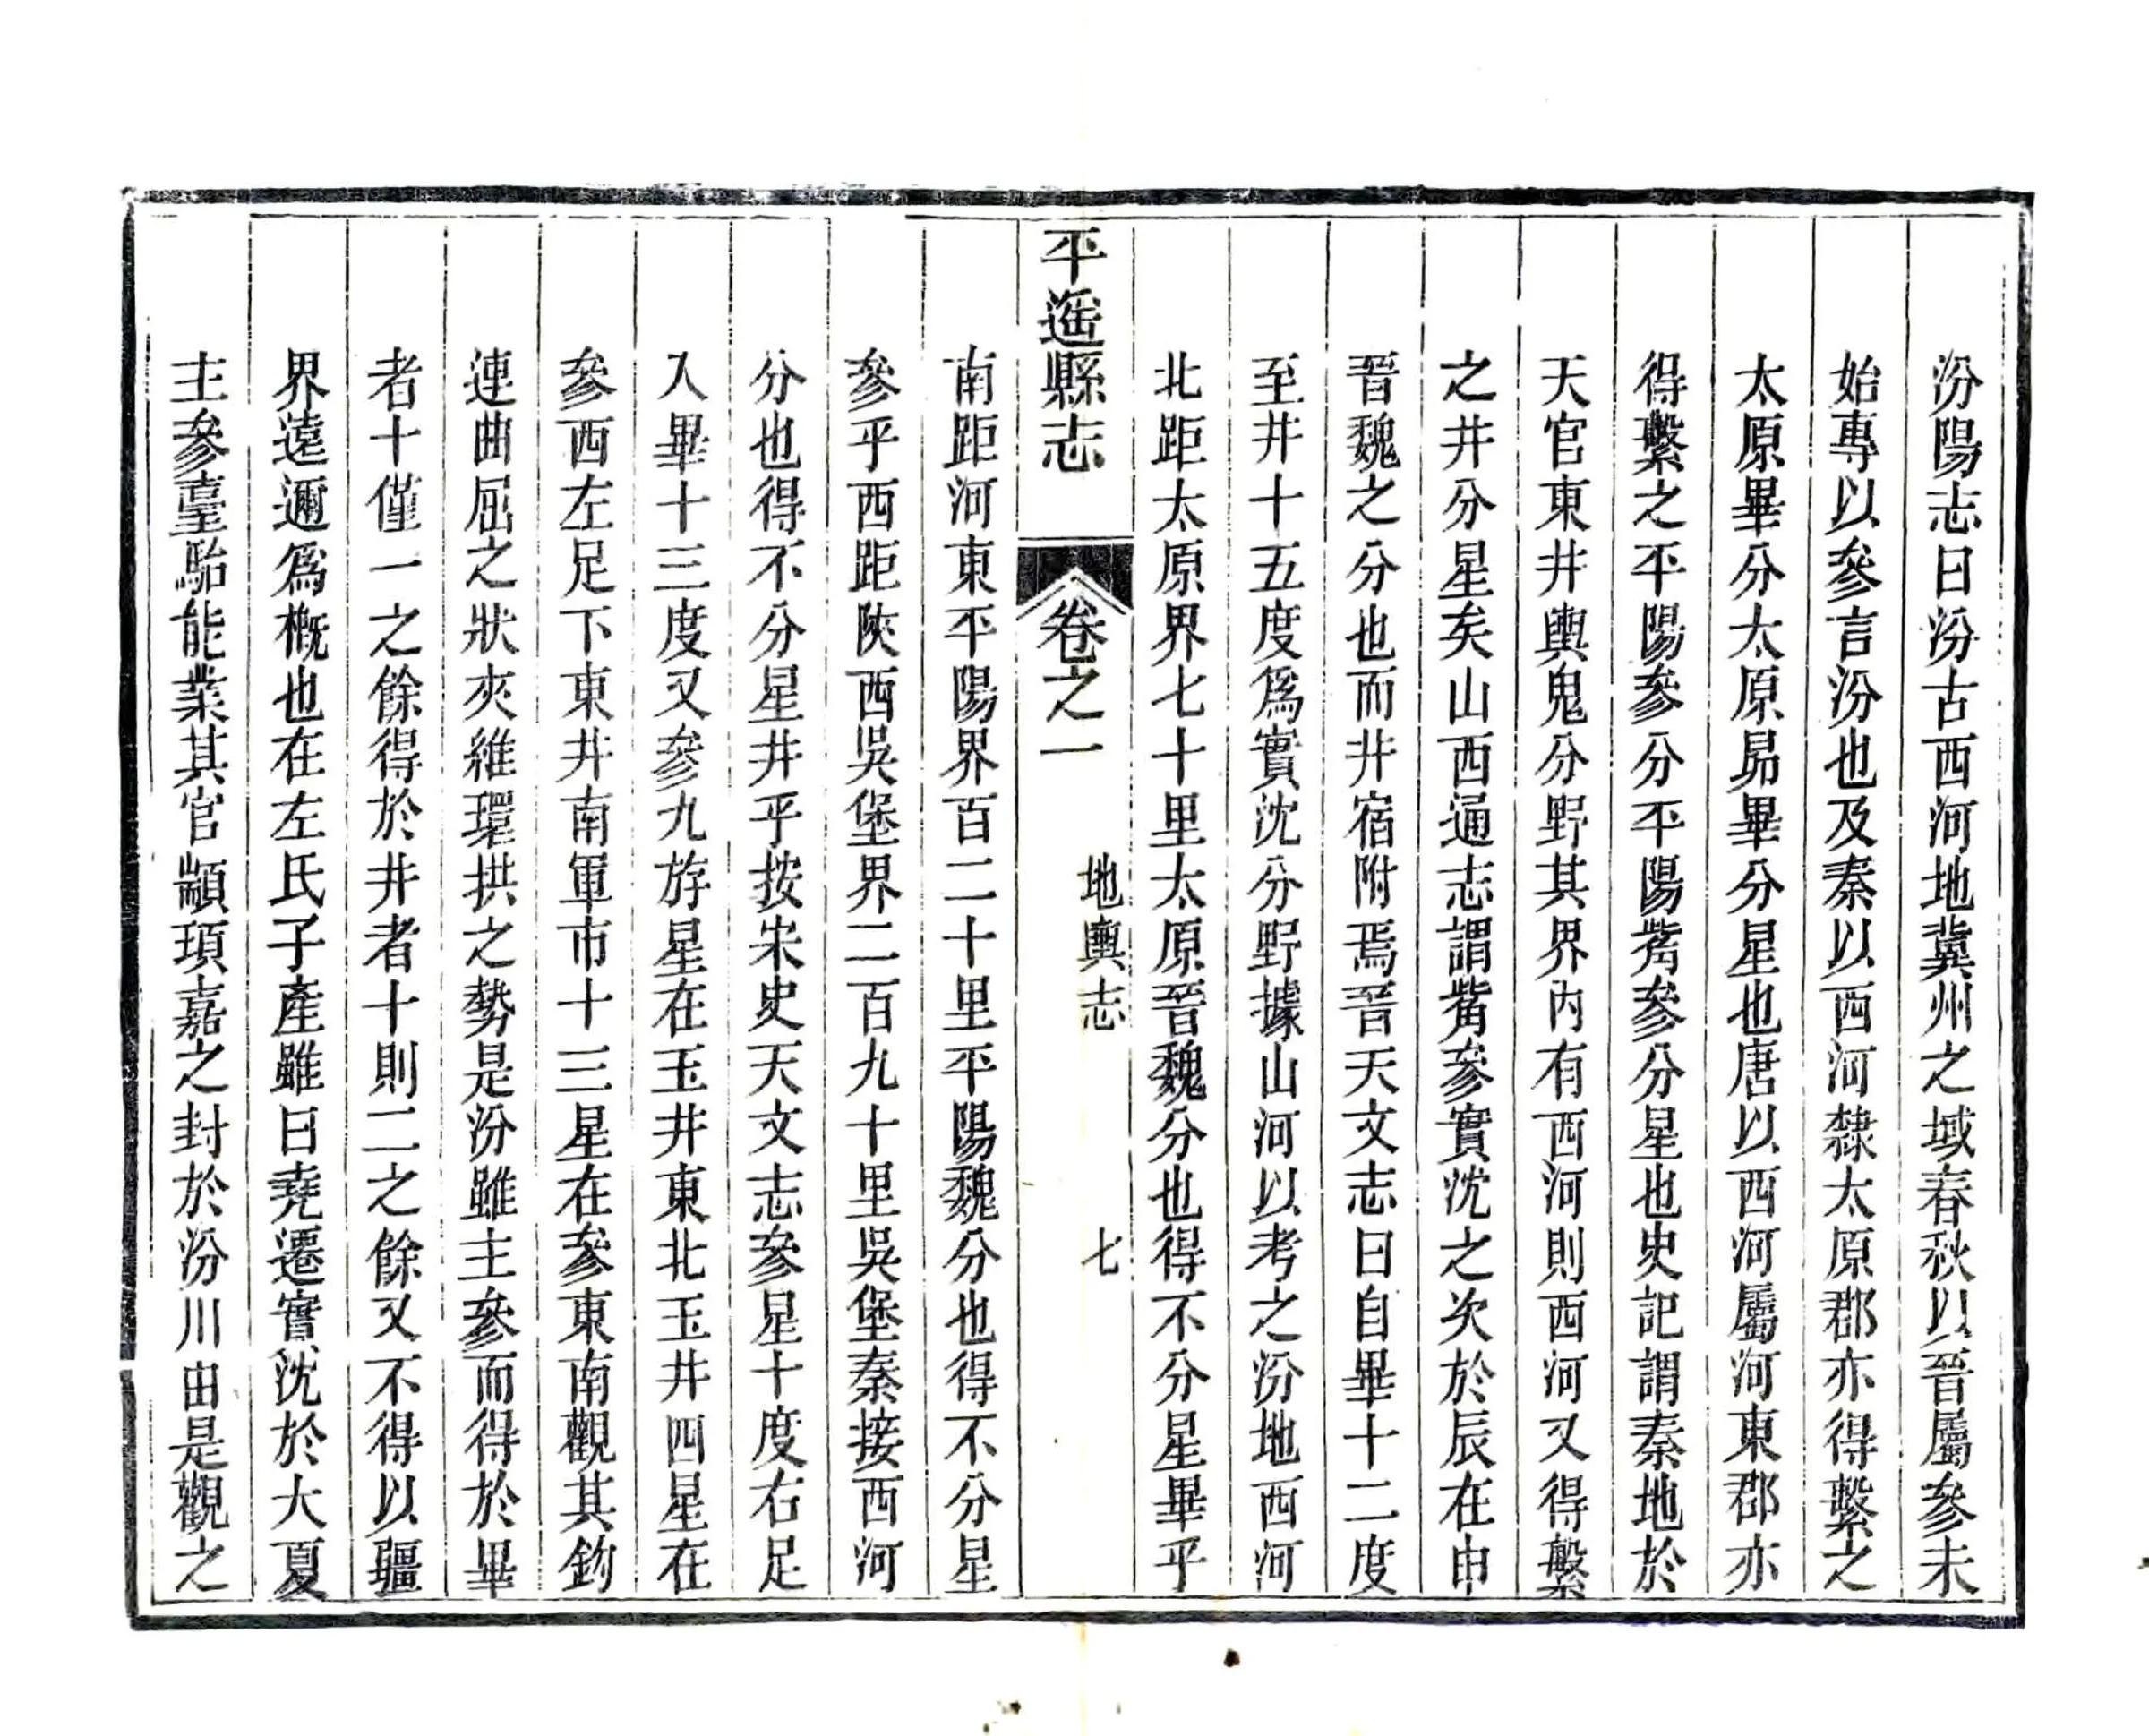 汾陽志曰汾古西河地冀州之域春秋以晉屬參未
始專以參言汾也及秦以西河隸太原郡亦得繫之
太原畢分太原昴畢分星也唐以西河屬河東郡亦
得繫之平陽參分平陽觜參分星也史記謂秦地於
天官東井輿鬼分野其界內有西河則西河又得繫
之井分星矣山西通志謂觜參實沈之次於辰在申
晉魏之分也而井宿附焉晉天文志曰自畢十二度
至井十五度爲實沈分野據山河以考之汾地西河
北距太原界七十里太原晉魏分也得不分星畢乎
平遥縣志 卷之一 地輿志 七
南距河東平陽界百二十里平陽魏分也得不分星
參乎西距陝西吳堡界二百九十里吳堡秦接西河
分也得不分星井乎按宋史天文志參星十度右足
入畢十三度又參九斿星在玉井東北玉井四星在
參西左足下東井南軍市十三星在參東南觀其鈎
連曲屈之狀夾維環拱之勢是汾雖主參而得於畢
者十僅一之餘得於井者十則二之餘又不得以疆
界遠邇爲槪也在左氏子產雖曰堯遷實沈於大夏
主參臺駘能業其官顓頊嘉之封於汾川由是觀之